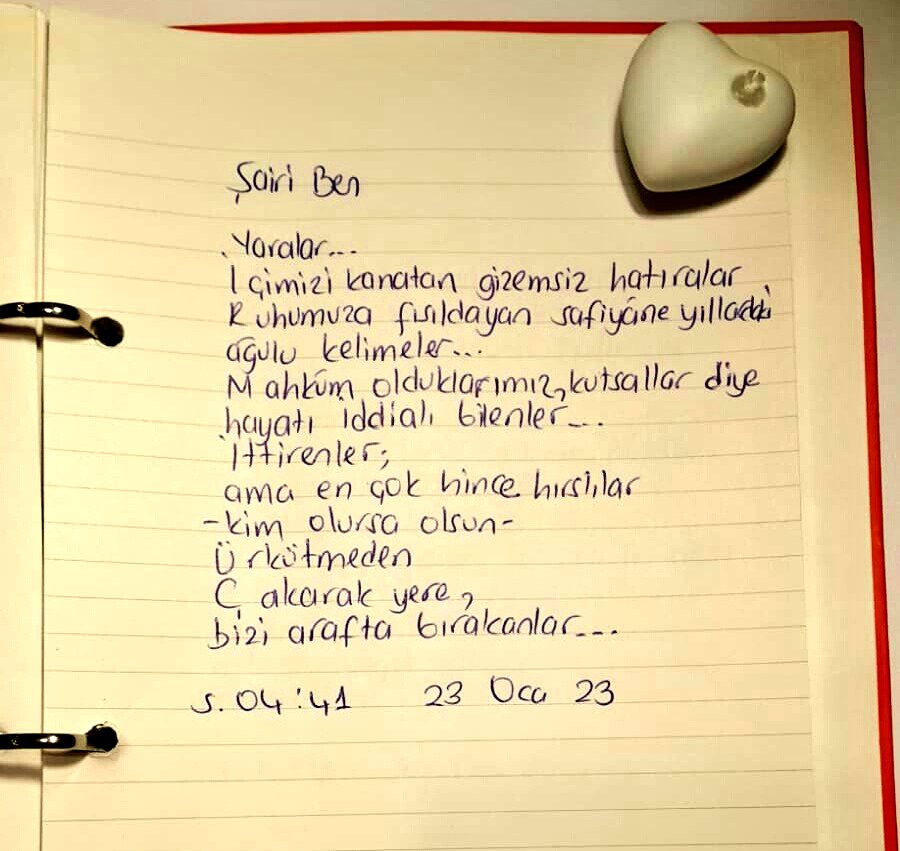 Şairi Ben
Yaralar...
İçimizi kanatan gizemsiz hatıralar
Ruhumuza fısıldayan safiyâne yıllardaki
ağulu kelimeler...
Mahkûm olduklarımız, kutsallar diye
hayatı iddialı bilenler...
İttirenler;
ama en çok hınca hırslılar
-kim olursa olsun-
Ürkütmeden
Çakarak yere,
bizi arafta bırakanlar...
s. 04:41 23 Oca 23